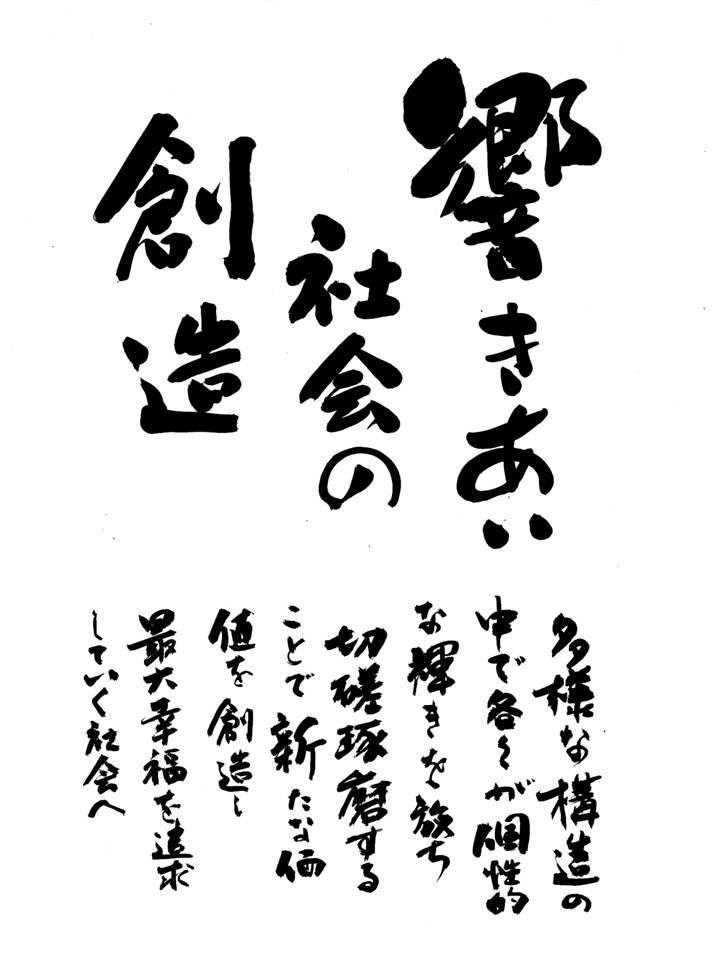 響きあい
社会の
創造
多様な構造の
中で各々が個性的
な輝きを放ち
切磋琢磨する
ことで新たな価
値を創造し
最大幸福を追求
していく社会へ